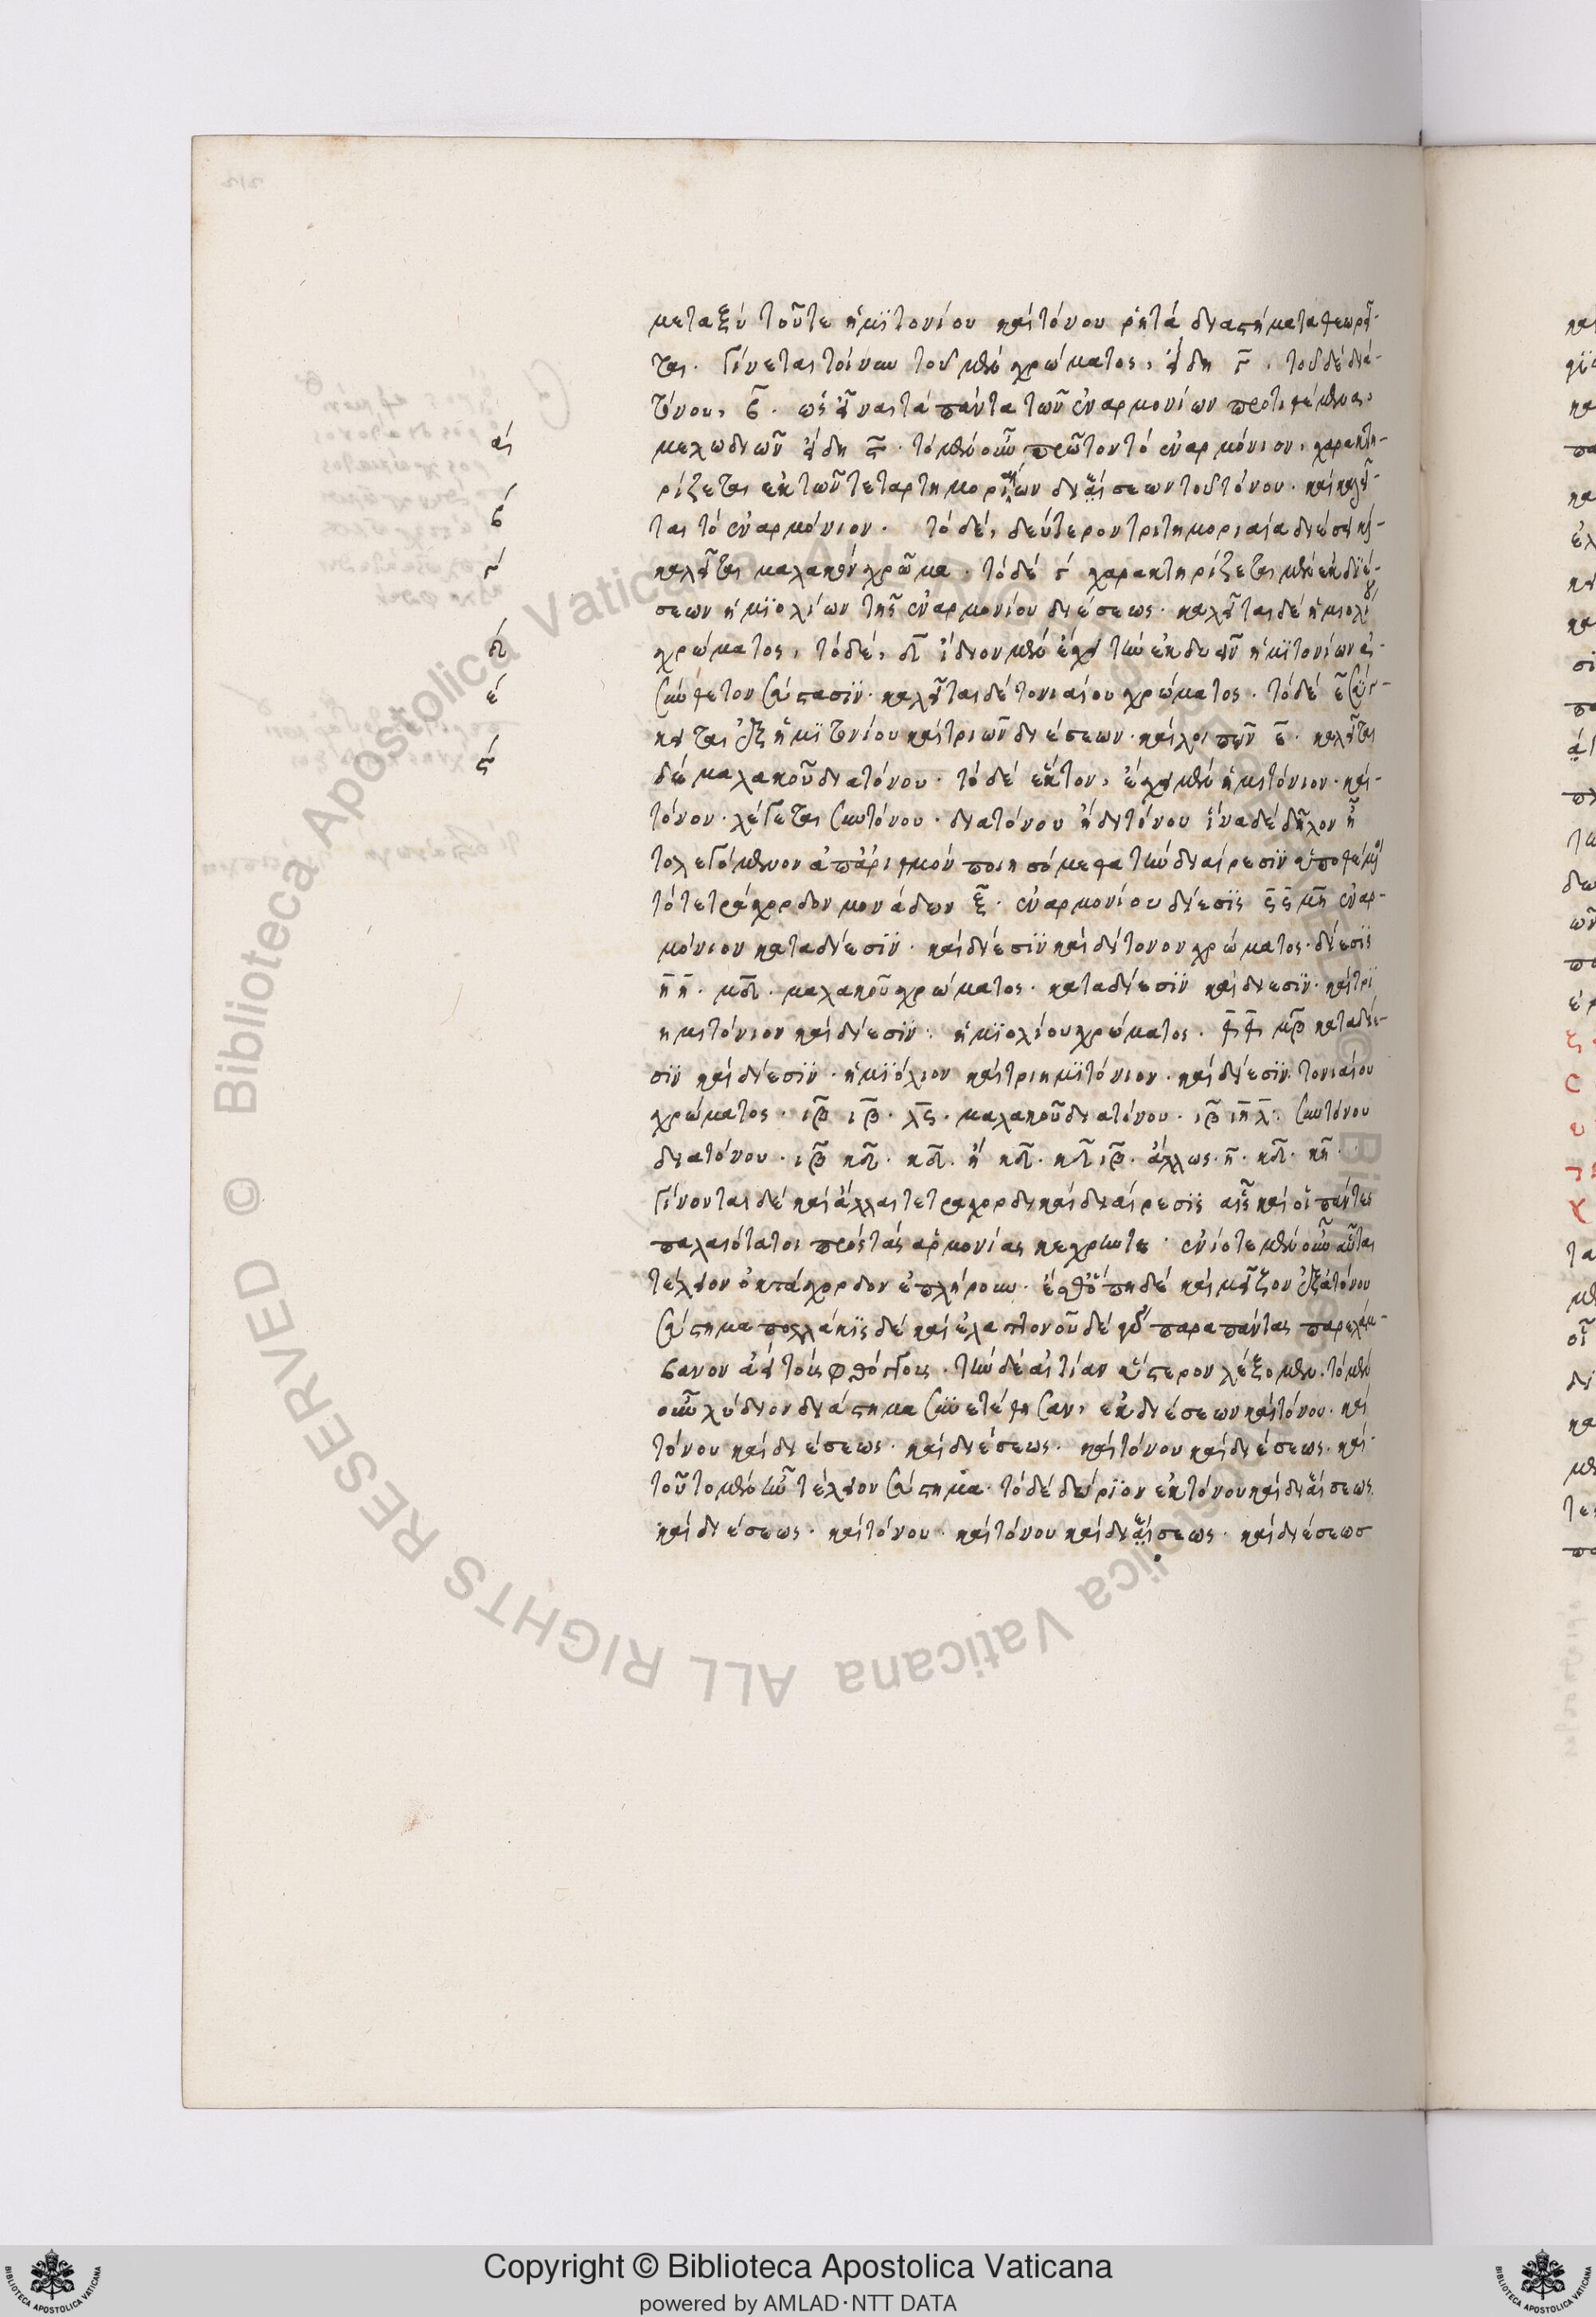 μεταξὺ τοῦτε ἡμϊτονίου καὶ τόνου ῥητὰ διαστήματα θεωρεῖ-
ται. Γίνεται τοίνυν τοῦ μὲν χρώματος, εἴδη γ̄. τοῦ δὲ δια-
τόνου, β̄. ὡς εἶναι τὰ πάντα τῶν ἐναρμονίων προτιθέμενα,
ας
μελωδιῶν εἴδη ϛ̄. τὸ μὲν οὖν πρῶτον τὸ ἐναρμόνιον, χαρακτη-
ρίζεται ἐκ τῶν τεταρτημοριαίων διέσεων τοῦ τόνου. καὶ καλεῖ-
β
ται τὸ ἐναρμόνιον. τὸ δὲ, δεύτερον τριτημοριαία διέσει κὶ-
γ
καλεῖται μαλακὸν χρῶμα. τὸ δὲ γ χαρακτηρίζεται μὲν ἐκ διέ-
σεων ἡμϊολίων τῆς ἐναρμονίου διέσεως. καλεῖται δὲ ἡμιολίου
δ
χρώματος, τὸ δὲ, δ̄ ἴδιον μὲν ἔχει τὴν ἐκ δυεῖν ἡμϊτονίων ἀ-
ε
σύνθετον σύστασϊν. καλεῖται δὲ τονιαίου χρώματος. τὸ δὲ ε̄ συνέστ-
ηκεται ἐξ ἡμϊτονίου καὶ τριῶν διέσεων. καὶ λοιπῶν ε̄. καλεῖται
ϛ
δὲ μαλακοῦ διατόνου. τὸ δὲ ἕκτον, ἔχει μὲν ἡμιτόνιον. καὶ
τόνον. λέγεται συντόνου. διατόνου ἢ διτόνου ἵνα δὲ δῆλον ᾖ
τὸ λεγόμενον ἀπ' ἀριθμῶν ποιησόμεθα τὴν διαίρεσϊν ὑποθέμενοι
τὸ τετράχορδον μονάδων ξ̄. ἐναρμονίου δίεσϊς ϛ̄ ϛ̄ μη̄ ἐναρ-
μόνιον κατὰ δίεσϊν. καὶ δίεσϊν καὶ δίτονον χρώματος. δίεσϊς
η̄ η̄. μδ̄. μαλακοῦ χρώματος. κατὰ δίεσϊν καὶ δίεσϊν. καὶ τρι
ημιτόνιον καὶ δίεσϊν. ἡμϊολίου χρώματος. θ̄ θ̄ μβ̄ κατὰ δίε-
σϊν καὶ δίεσϊν. ἡμϊόλιον καὶ τριημϊτόνιον. καὶ δίεσϊν. τονιαίου
χρώματος. ιβ̄ ιβ̄. λϛ̄. μαλακοῦ διατόνου. ιβ̄ ιη̄ λ̄. συντόνου
διατόνου. ιβ̄ κδ̄. κδ̄. ἢ κδ̄. κδ̄ ιβ̄. ἄλλως. η̄. κδ̄. κη̄.
Γίνονται δὲ καὶ ἄλλαι τετραχορδικαὶ διαίρεσϊς αἷς καὶ οἱ πάντες
παλαιότατοι πρὸς τὰς ἁρμονίας κέχρηντε. ἐνίοτε μὲν οὖν αὗται
τέλειον ὀκτάχορδον ἐπλήρουν. ἔσθ' ὅπη δὲ καὶ μεῖζον ἑξατόνου
σύστημα πολλάκϊς δὲ καὶ ἔλαττον οὐδὲ γὰρ παρὰ πάντας παρελάμ-
βανον ἀεὶ τοὺς φθόγγους. τὴν δὲ αἰτίαν ὕστερον λέξομεν. τὸ μὲν
οὖν λύδιον διάστημα συνετέθησαν, ἐκ διέσεων καὶ τόνου. καὶ
τόνου καὶ διέσεως. καὶ διέσεως. καὶ τόνου καὶ διέσεως. καὶ
τοῦτο μὲν ἦν τέλειον σύστημα. τὸ δὲ δώριον ἐκ τόνου καὶ διέσεως
καὶ διέσεως. καὶ τόνου. καὶ τόνου καὶ διέσεως. καὶ διέσεωσ
Copyright © Biblioteca Apostolica Vaticana
powered by AMLAD·NTT DATA